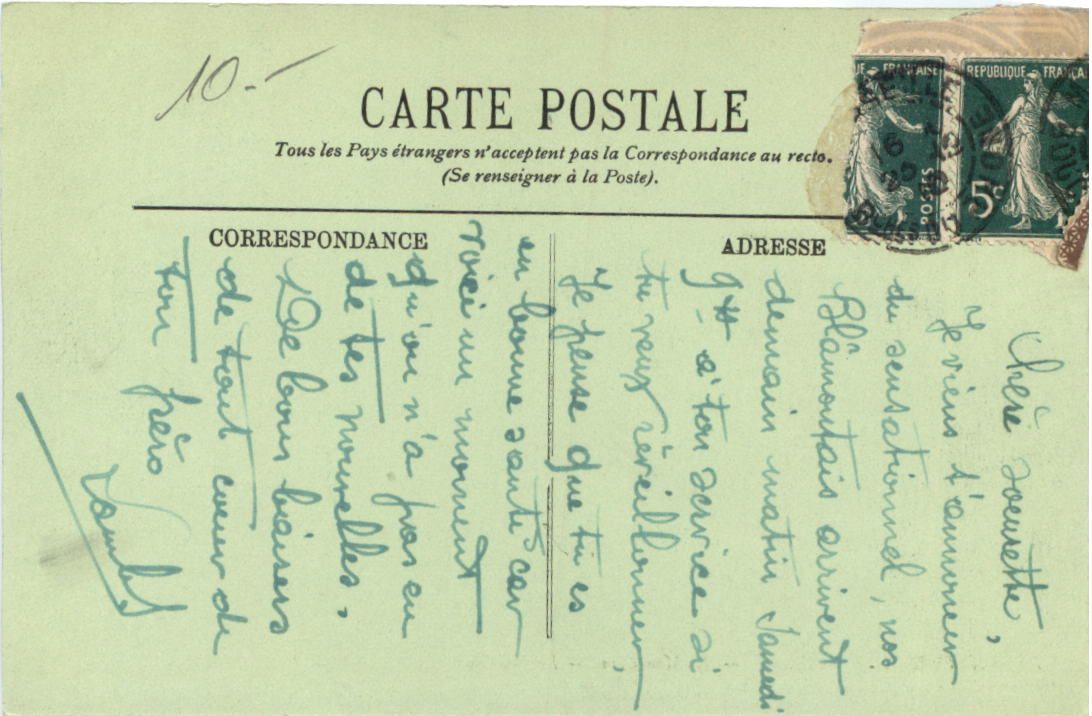 10.-
CARTE POSTALE
Tous les Pays étrangers n'acceptent pas la Correspondance au recto.
(Se renseigner à la Poste).
UE FRANÇAISE
POSTES
REPUBLIQUE FRANÇA
5c
CORRESPONDANCE
ADRESSE
Chère soeurette,
Je viens t'annoncer
du sensationnel, nos
Blâmontais arrivent
demain matin Samedi
à ton service si
tu veux réveillonner
Je pense que tu es
en bonne santé car
voici un moment
qu'on n'a pas eu
de tes nouvelles.
De bons baisers
de tout coeur de
ton frère